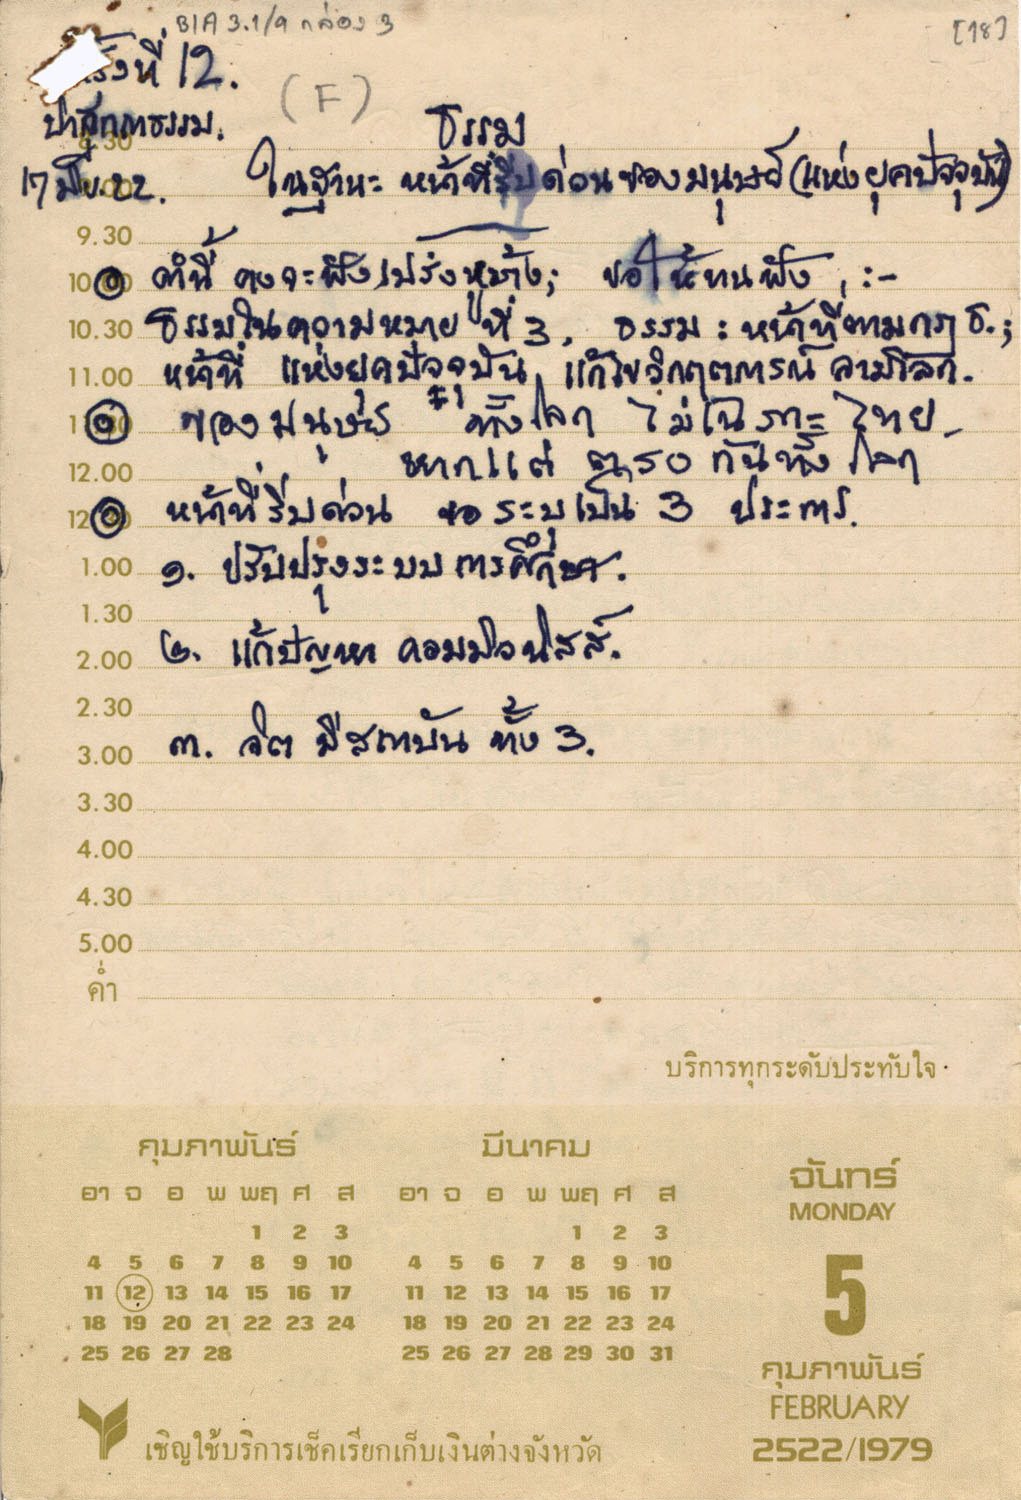 BIA 3.1/9 กล่อง 3
[18]
ครั้งที่ 12.
(F)
ปาฐกถาธรรม.
ธรรม
17 มีน.22.
ในฐานะ หน้าที่รีบด่วนของมนุษย์ (แห่งยุคปัจจุบัน)
8.30
9.00
9.30
10.00 คำนี้ คงจะฟังแปร่งหูบ้าง; ขอให้ทนฟัง, :-
10.30 ธรรมในความหมาย ที่ 3, ธรรม : หน้าที่ตามกฎ ธ.;
11.00 หน้าที่ แห่งยุคปัจจุบัน, แก้ไขวิกฤตการณ์ ลามโลก.
ของมนุษย์ ทั้งโลก ไม่เฉพาะไทย
12.00 หากแต่ ตรงกันทั้งโลก
หน้าที่รีบด่วน ขอระบุเป็น 3 ประการ.
1.00 ๑. ปรับปรุงระบบการศึกษา.
1.30
2.00 ๒. แก้ปัญหา คอมมิวนิสส์.
2.30
3.00 ๓. จิต มีสถาบัน ทั้ง 3.
3.30
4.00
4.30
5.00
ค่ำ
บริการทุกระดับประทับใจ
กุมภาพันธ์
อา จ อ พ พฤ ศ ส
1 2 3
4 5 6 7 8 9 10
11 12 13 14 15 16 17
18 19 20 21 22 23 24
25 26 27 28
มีนาคม
อา จ อ พ พฤ ศ ส
1 2 3
4 5 6 7 8 9 10
11 12 13 14 15 16 17
18 19 20 21 22 23 24
25 26 27 28 29 30 31
จันทร์
MONDAY
5
กุมภาพันธ์
FEBRUARY
2522/1979
เชิญใช้บริการเช็คเรียกเก็บเงินต่างจังหวัด